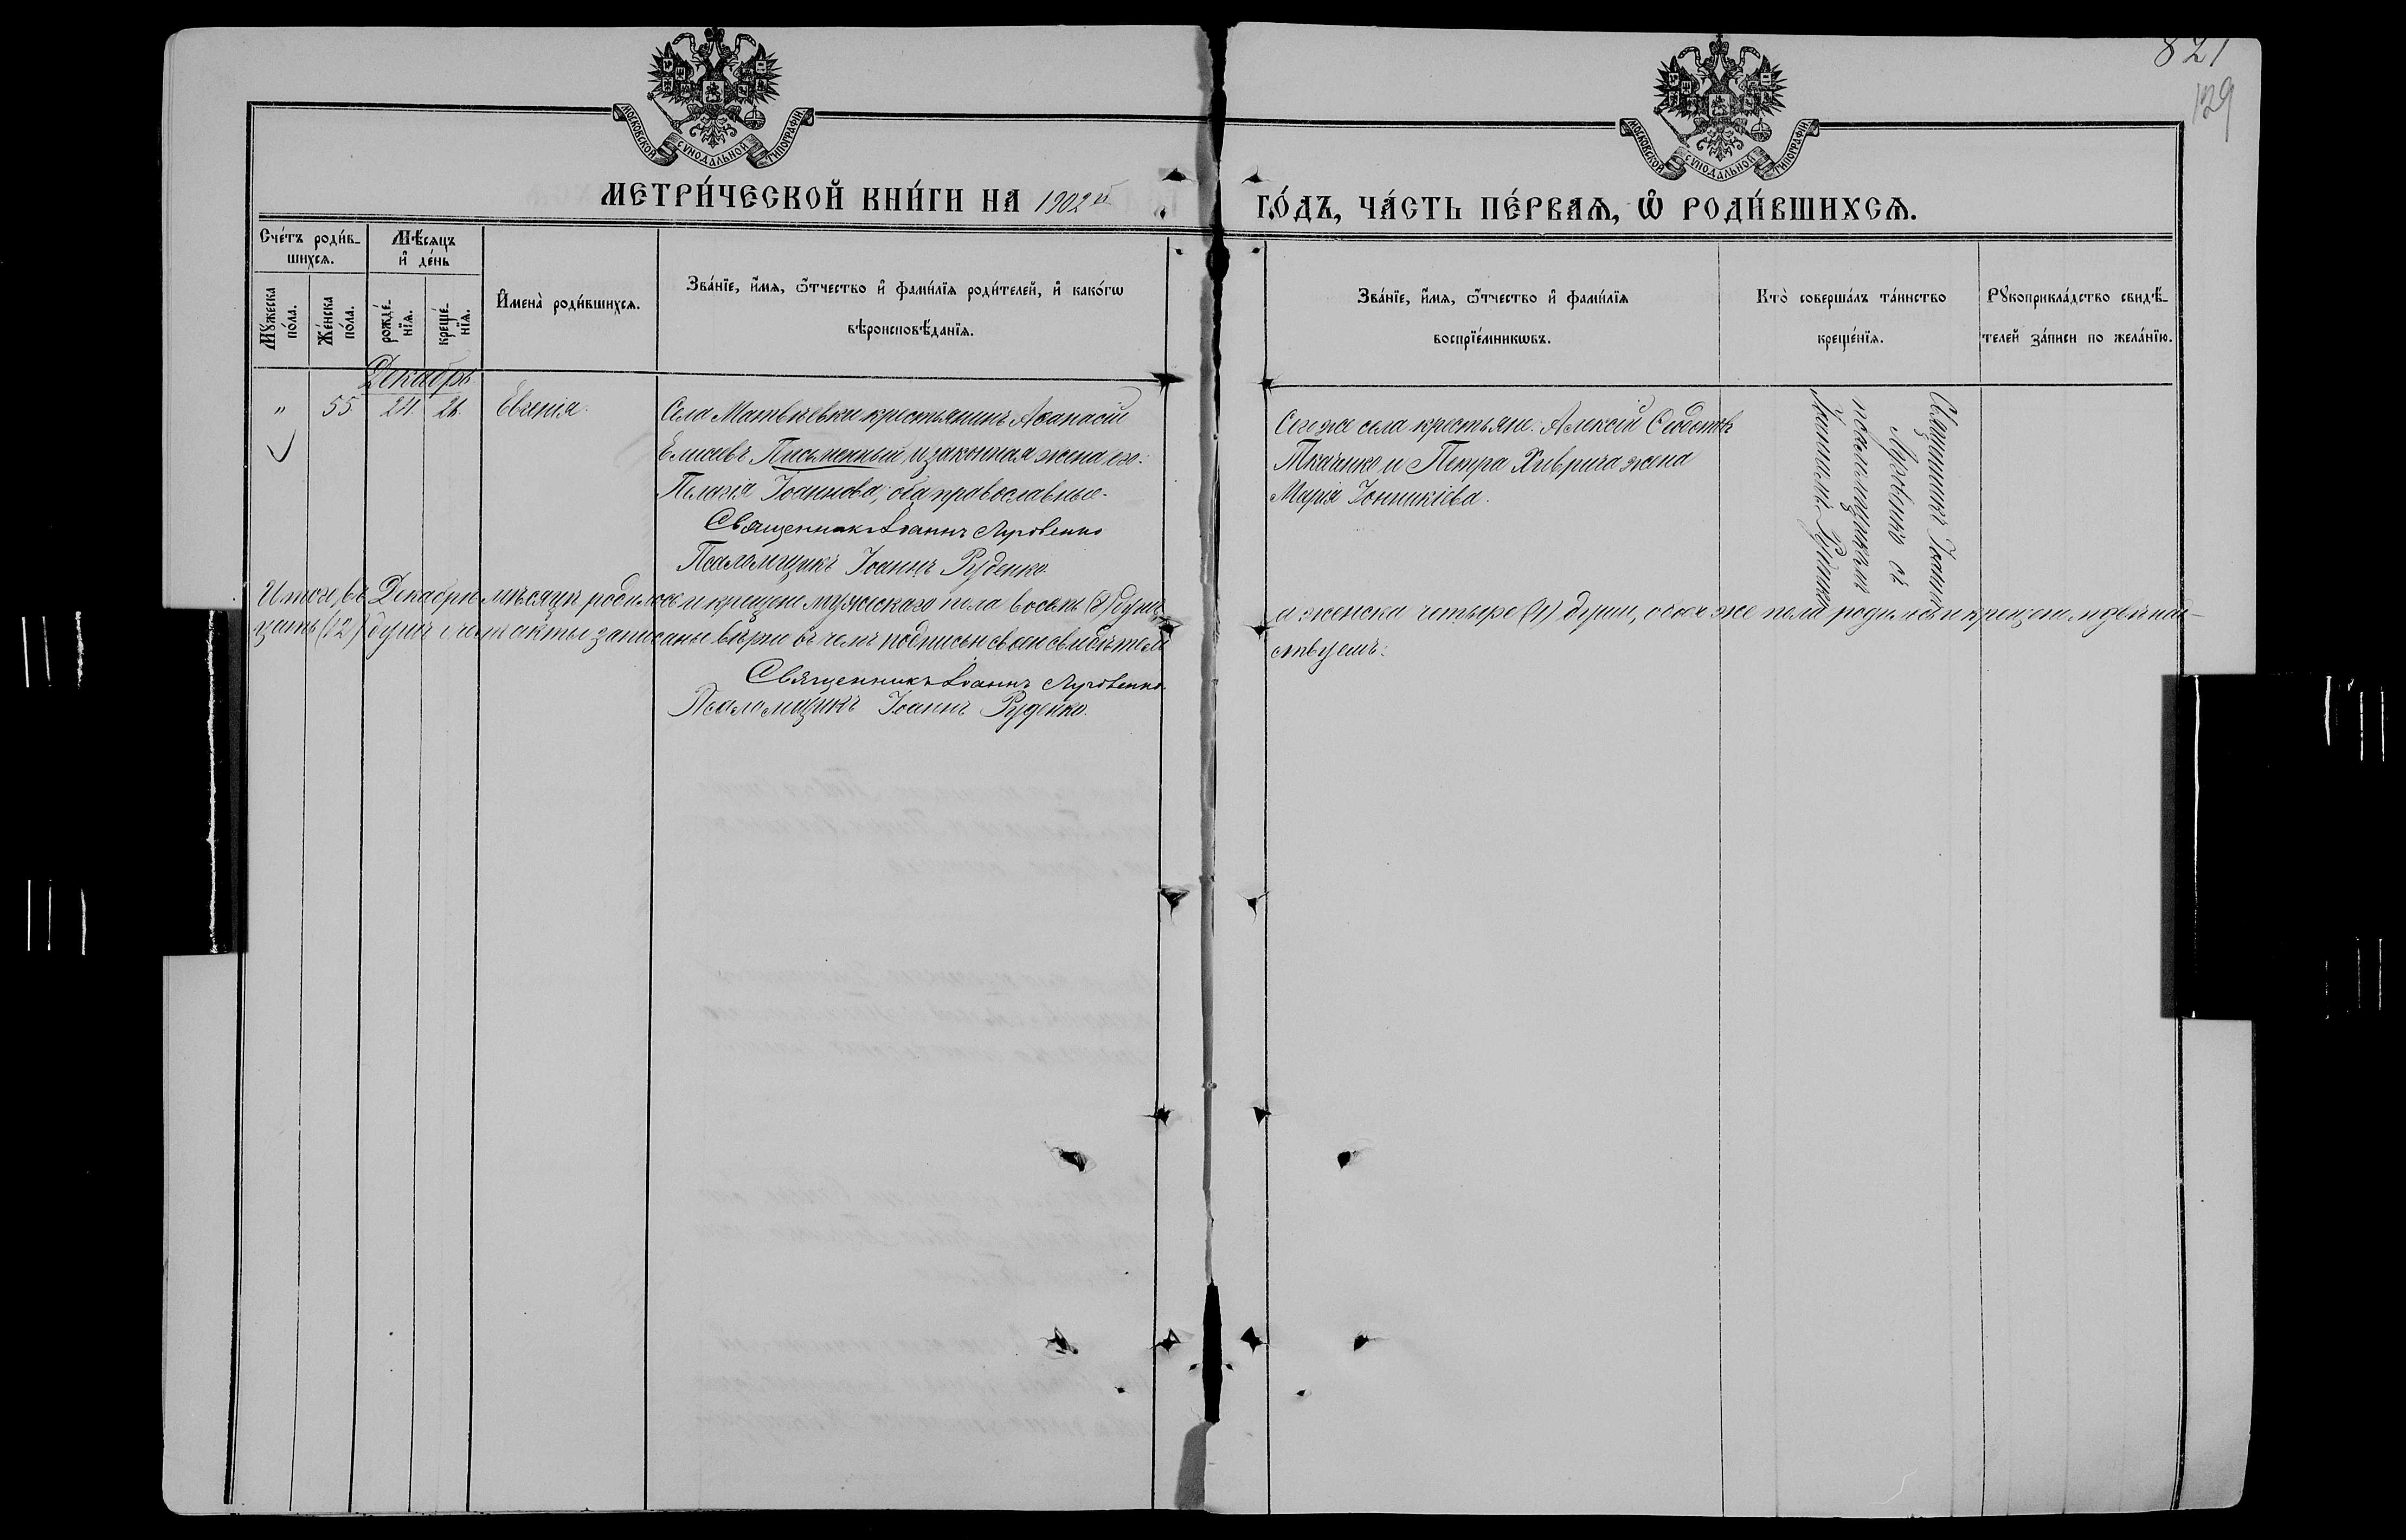 821
129
МОСКОВСКОЙ СУНОДАЛЬНОЙ ТИПОГРАФІИ
МОСКОВСКОЙ СУНОДАЛЬНОЙ ТИПОГРАФІИ
МЕТРИ́ЧЕСКОЙ КНИ́ГИ НА 1902й
ГО́ДЪ, ЧА́СТЬ ПЕ́РВАѦ, Ѡ҆ РОДИ́ВШИХСѦ.
Сче́тъ роди́в-
шихсѧ.
Мѣ́сѧцъ
и҆ де́нь
Мꙋ́жеска
по́ла.
Же́нска
по́ла.
рожде́-
нїѧ.
креще́-
нїѧ.
И҆мена̀ роди́вшихсѧ.
Зва́нїе, и҆́мѧ, ѻ҆́тчество и҆ фами́лїѧ роди́телей, и҆ како́гѡ
вѣроисповѣ́данїѧ.
Зва́нїе, и҆́мѧ, ѻ҆́тчество и҆ фами́лїѧ
воспрїе́мникѡвъ.
Кто̀ соверша́лъ та́инство
креще́нїѧ.
Рꙋкоприкла́дство свидѣ́-
телей за́писи по жела́нїю.
Декабрь
" 55. 24 26. Евгенія.
Села Матвѣевки крестьянинъ Аѳанасій
Елисеевъ Письменный и законная жена его:
Пелагія Іоаннова, оба православные.
Священникъ Іоаннъ Луговенко
Псаломщикъ Іоаннъ Руденко
Сего же села крестьяне: Алексій Ѳеодотовъ
Ткаченко и Петра Хиврича жена
Марія Іоанникіева.
Священникъ Іоаннъ
съ
псаломщикомъ
Іоанномъ Руденко
Итого, въ Декабрѣ мѣсяцѣ родилось и крещено мужескаго пола восемь (8) душъ,
а женска четыре (4) души, обоего же пола родилось и крещено двѣнад-
цать (12) душъ. акты записаны вѣрно въ чемъ подписью своею свидѣтель
ствуемъ:
Священникъ Іоаннъ Луговенко.
Псаломщикъ Іоаннъ Руденко.